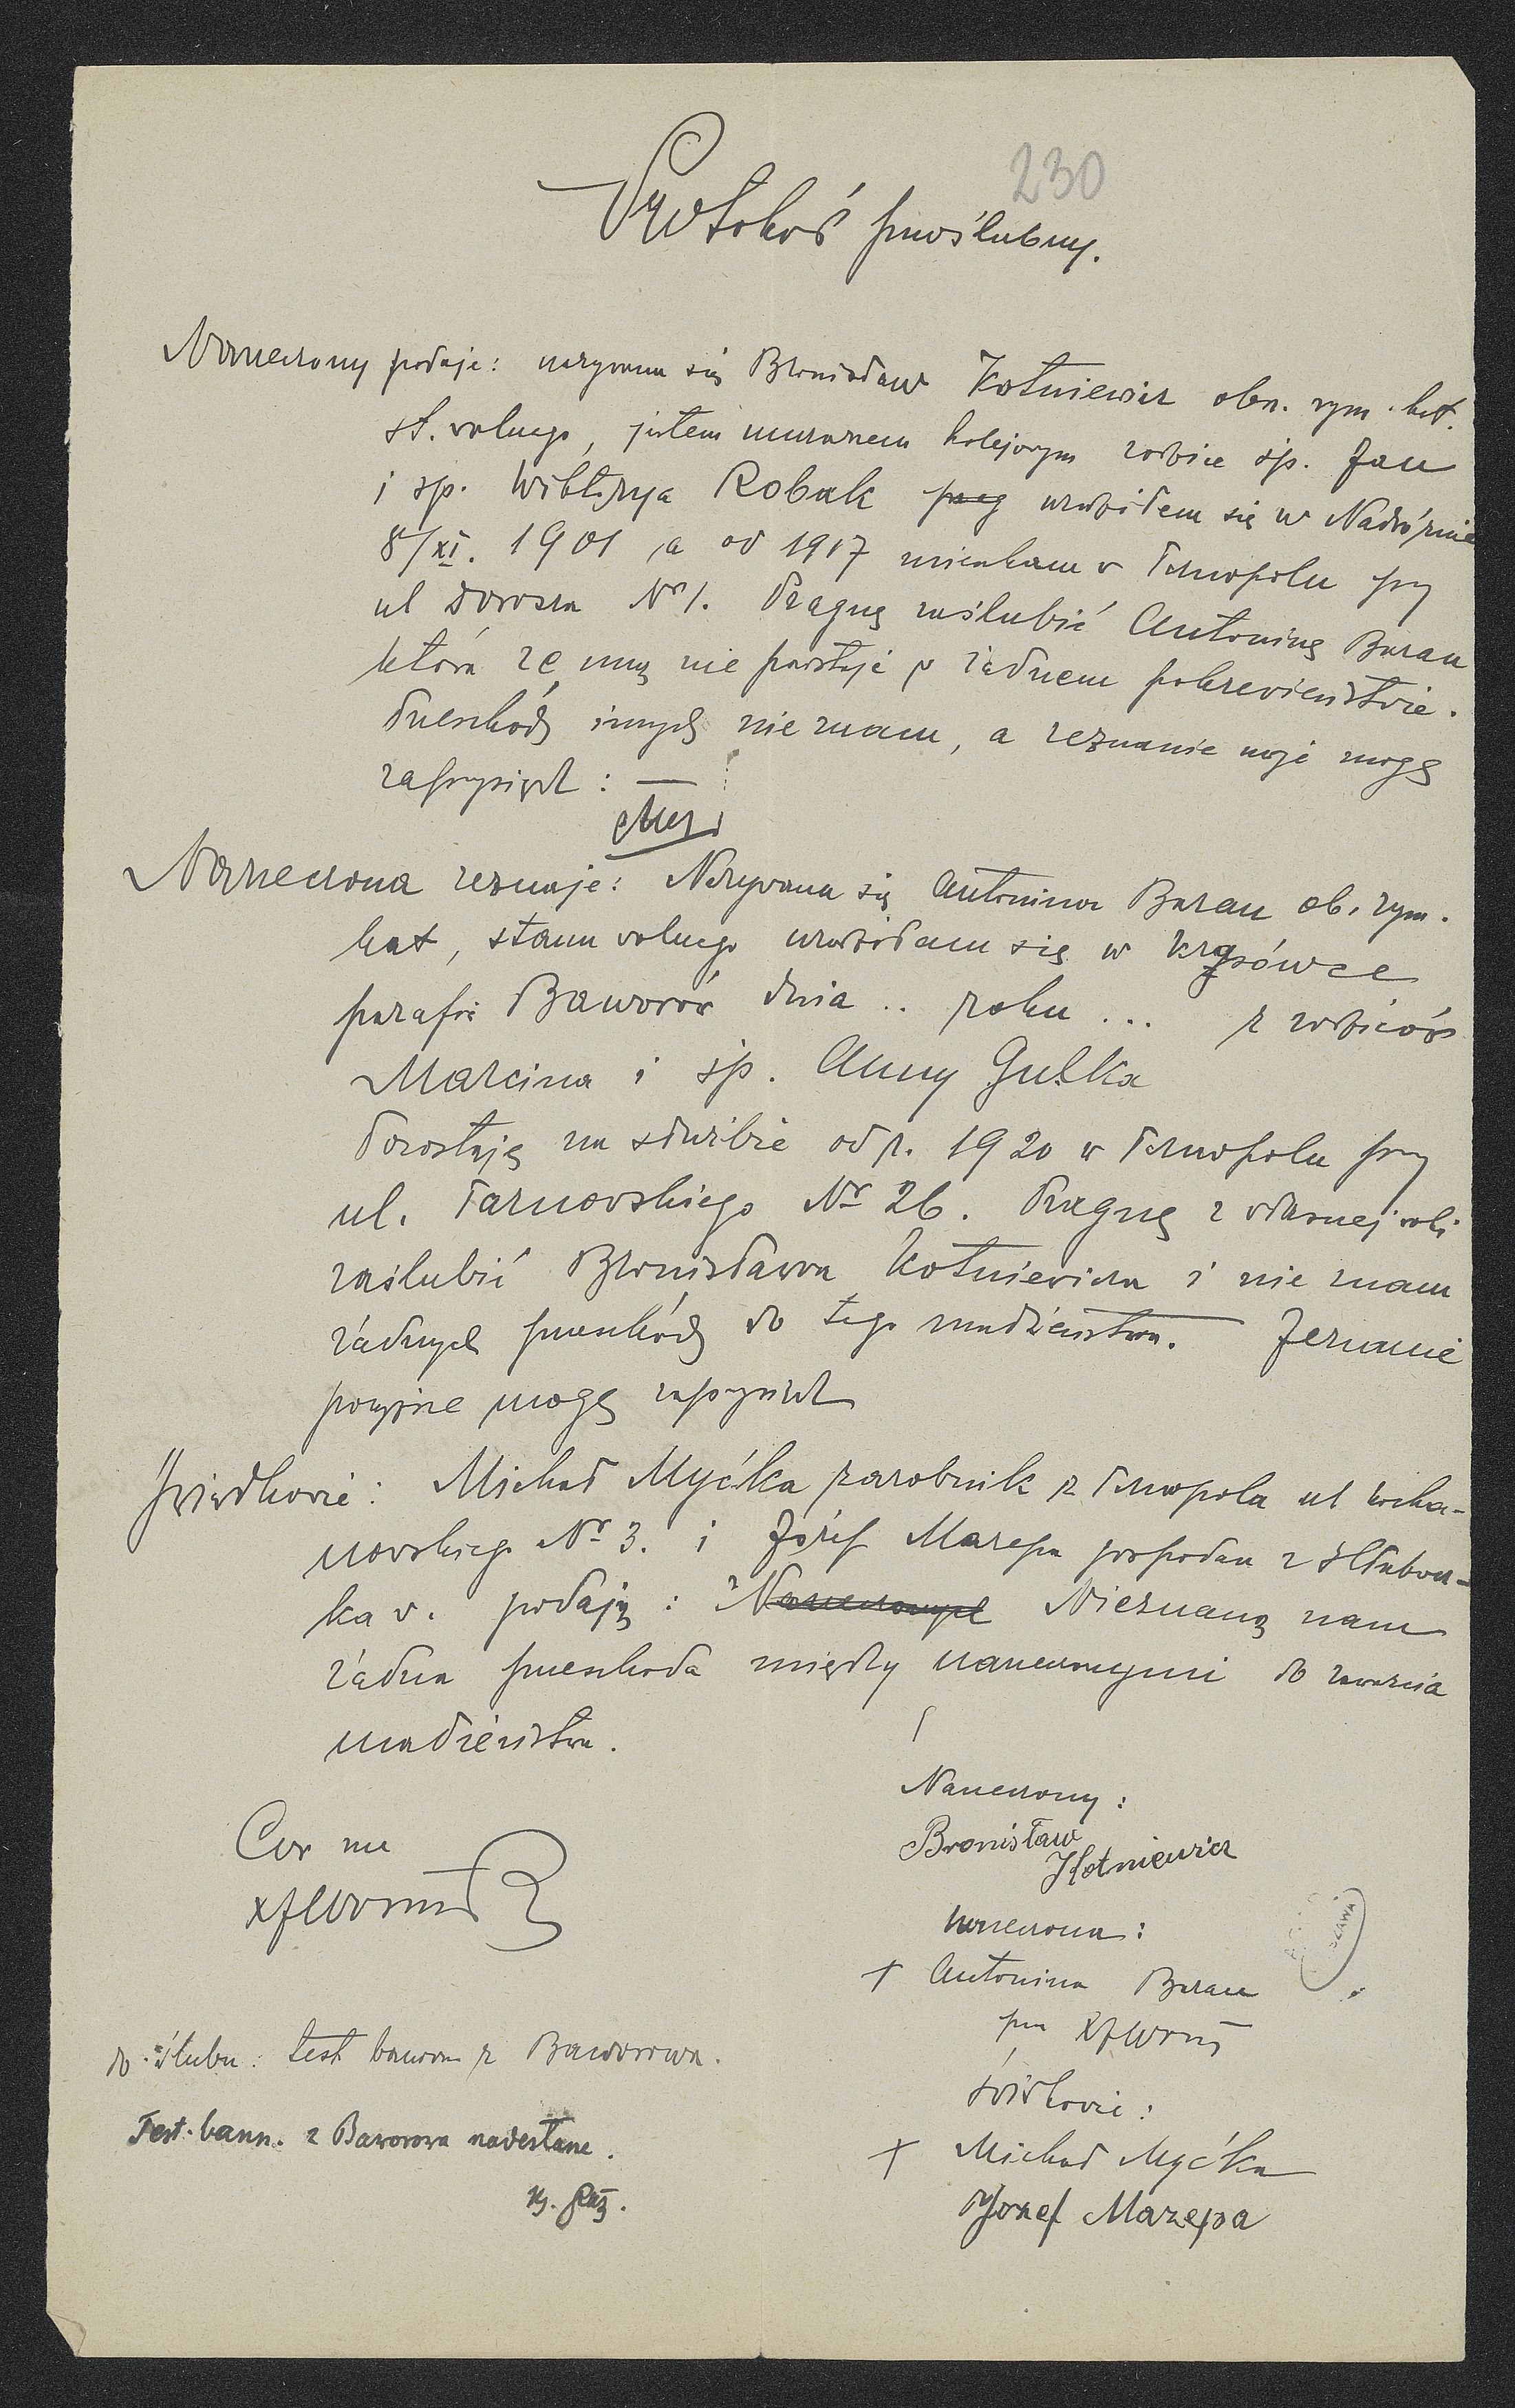 230
Protokół przedślubny.
Narzeczony podaje: nazywam się Bronisław Kotniewicz obrz. rzym. kat.
st. wolnego, jestem murarzem kolejowym rodzice śp. Jan
i śp. Wiktorya Robak urodziłem się w Nadwórnie
8/XI. 1901, a od 1917 mieszkam w Tarnopolu przy
ul Nr 1. Pragnę zaślubić Antoninę Baran
która ze mną nie pozostaje w żadnem pokrewieństwie.
Przeszkód innych nie mam, a zeznanie moje mogę
zaprzysiądz: —
Narzeczona zeznaje: Nazywam się Antonina Baran ob. rzym.
kat, stanu wolnego urodziłam się w Krasówce
parafii Baworów dnia .. roku ... z rodziców
Marcina i śp. Anny Gulka
Pozostaję na służbie od r. 1920 w Tarnopolu przy
ul. Tarnowskiego Nr 26. Pragnę z własnej woli
zaślubić Bronisława Kotniewicza i nie mam
żadnych przeszkód do tego małżeństwa. Zeznanie
powyższe mogę zaprzysiądz
Świadkowie: Michał Myćka zarobnik z Tarnopola ul Kocha-
nowskiego Nr 3. i Józef Mazepa gospodarz z
podają: Nieznana nam
żadna przeszkoda między narzeczonymi do zawarcia
małżeństwa.
Narzeczony:
Bronisław
Kotniewicz
Cor me
Narzeczona:
+ Antonina Baran
Świadkowie:
+ Michał Myćka
Józef Mazepa
do ślubu: test. bannorum z Baworowa.
Test. bann. z Baworowa nadesłane.